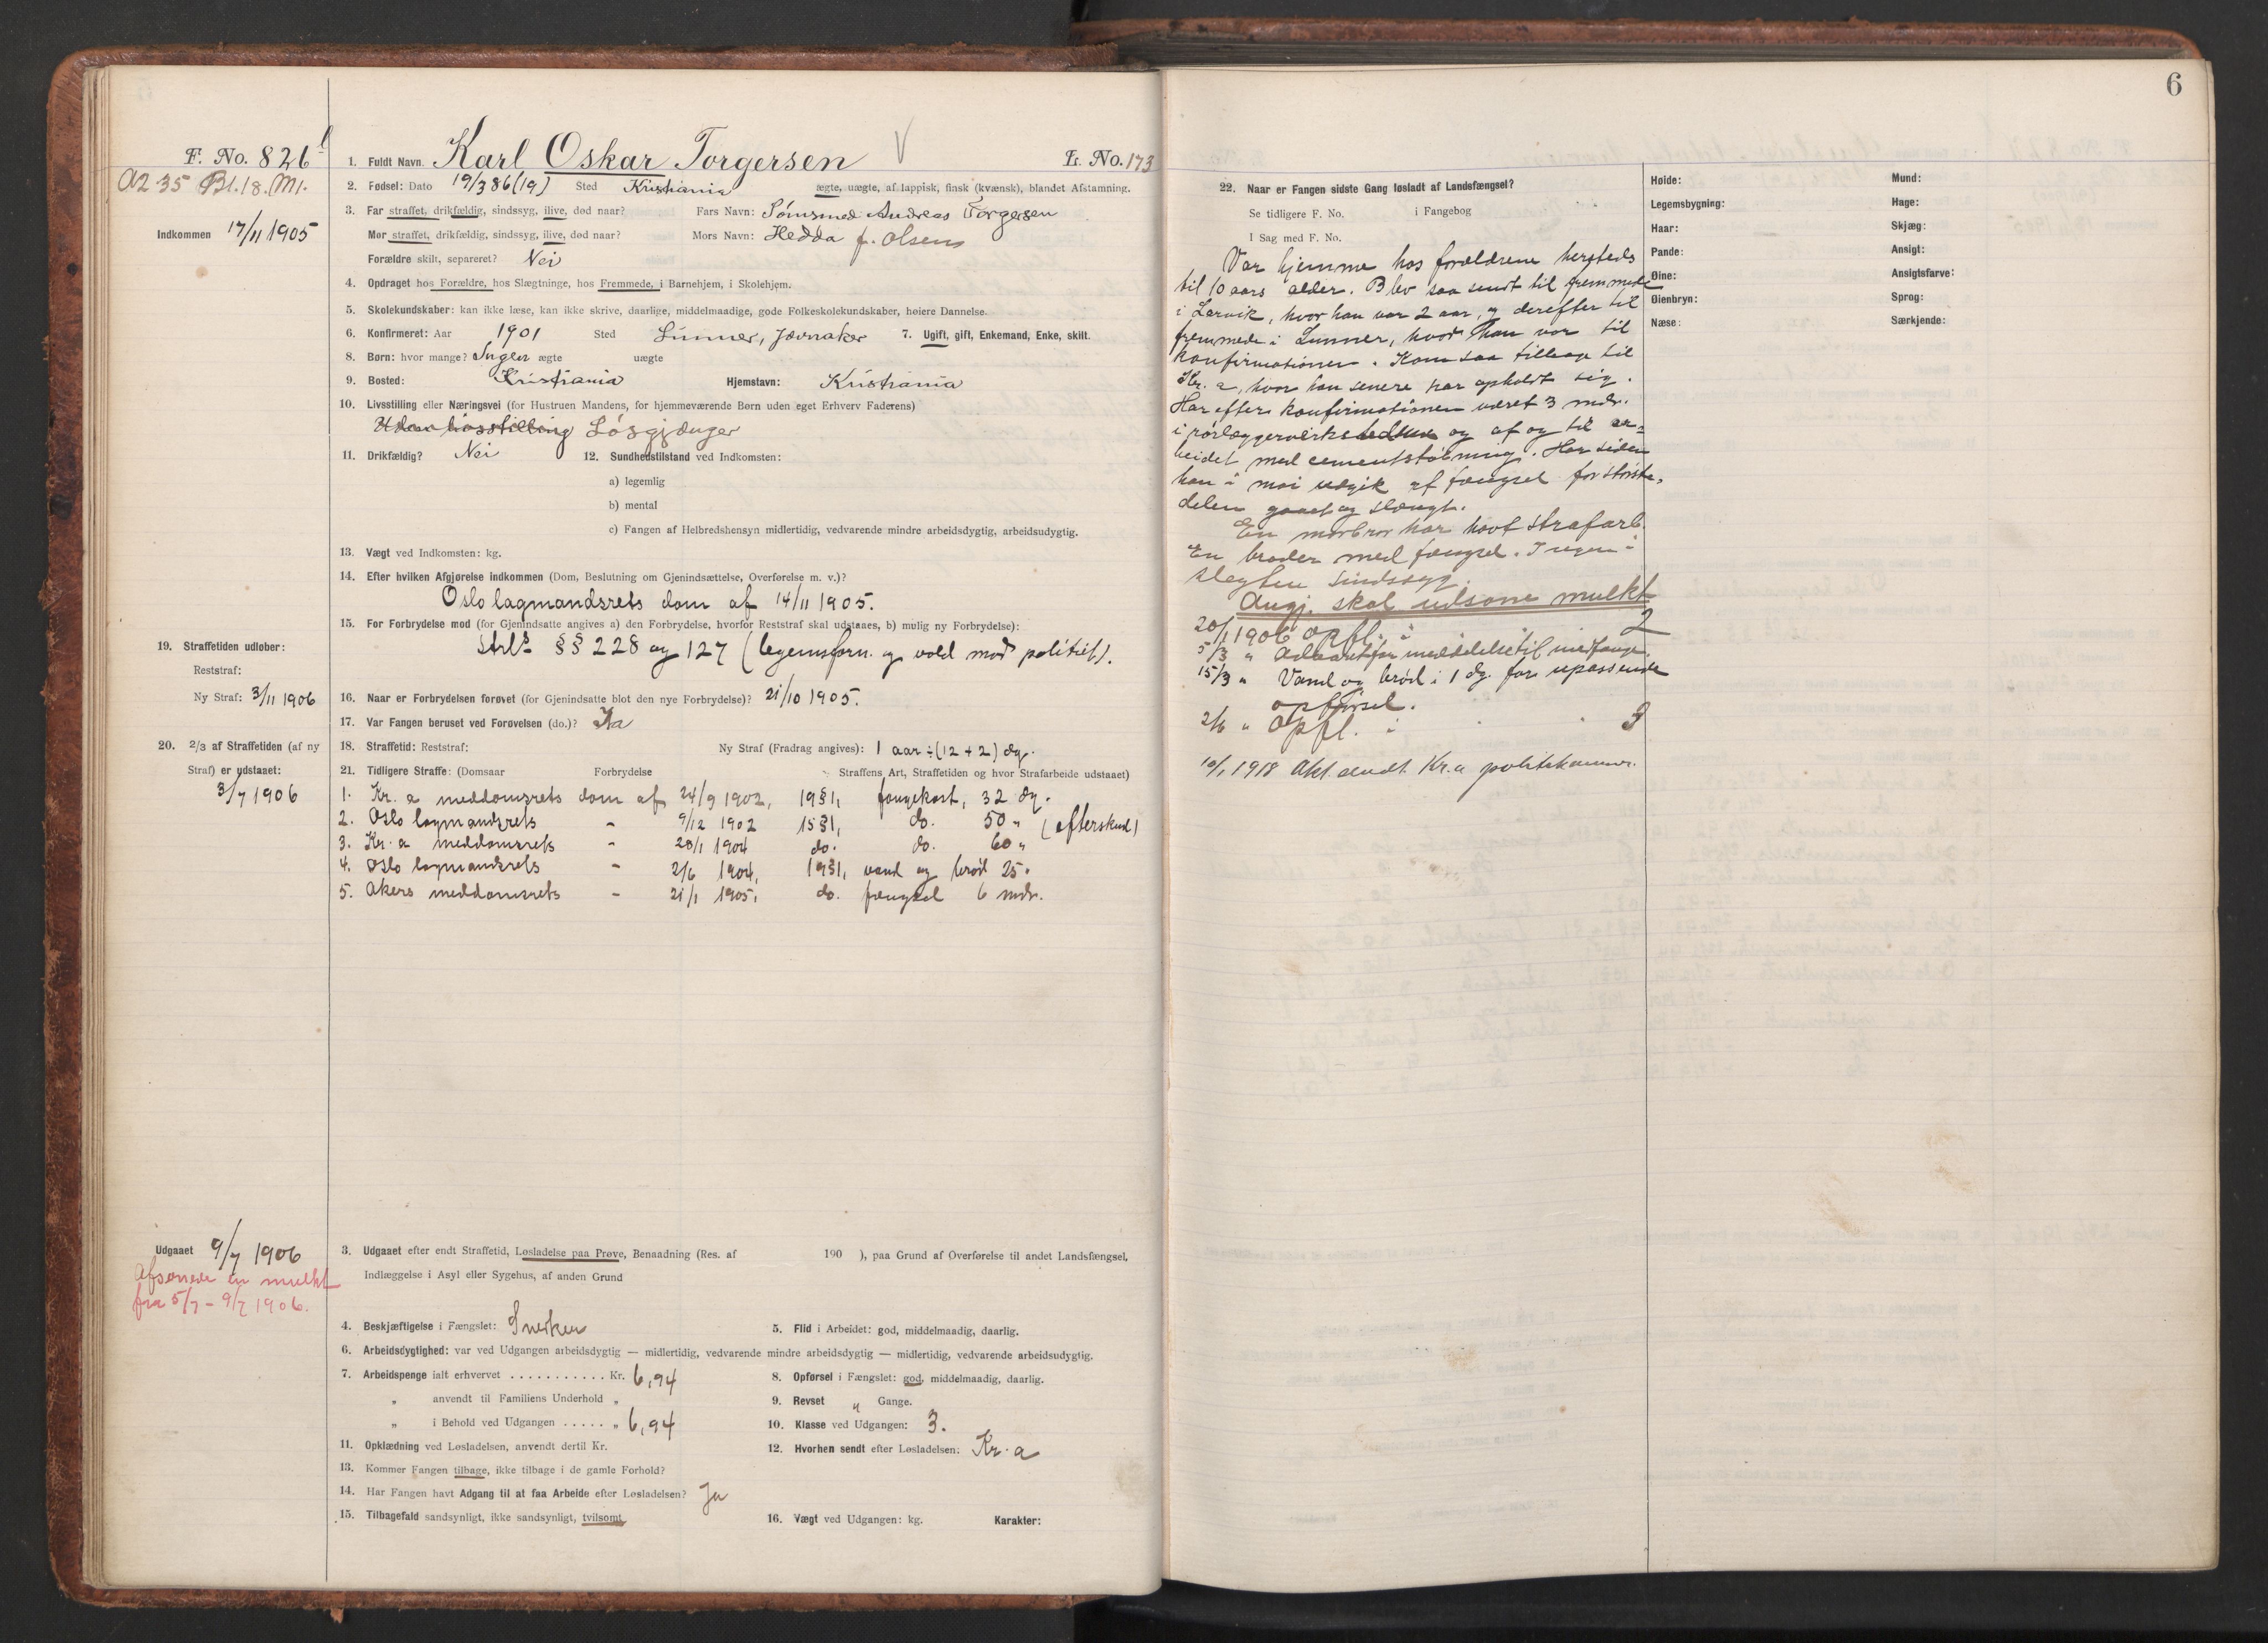 F. No. 826
A2 35 Bl. 18. M1.
Indkommen 17/11 1905
1. Fuldt Navn. Karl Oskar Torgersen V L. No. 173
2. Fødsel: Dato 19/3 86 (19) Sted Kristiania ægte, uægte, af lappisk, finsk (kvænsk), blandet Afstamning.
3. Far straffet, drikfældig, sindssyg, ilive, død naar? Fars Navn: Sømsmed Andreas Torgersen
Mor straffet, drikfældig, sindssyg, ilive, død naar? Mors Navn: Hedda f. Olsen
Forældre skilt, separeret? Nei
4. Opdraget hos Forældre, hos Slægtninge, hos Fremmede, i Barnehjem, i Skolehjem.
5. Skolekundskaber: kan ikke læse, kan ikke skrive, daarlige, middelmaadige, gode Folkeskolekundskaber, høiere Dannelse.
6. Konfirmeret: Aar 1901 Sted Lunner, Jevnaker 7. Ugift, gift, Enkemand, Enke, skilt.
8. Børn: hvor mange? Ingen ægte uægte
9. Bosted: Kristiania Hjemstavn: Kristiania
10. Livsstilling eller Næringsvei (for Hustruen Mandens, for hjemmeværende Børn uden eget Erhverv Faderens)
Uden livsstilling Løsgjænger
11. Drikfældig? Nei 12. Sundhedstilstand ved Indkomsten:
a) legemlig
b) mental
c) Fangen af Helbredshensyn midlertidig, vedvarende mindre arbeidsdygtig, arbeidsudygtig.
13. Vægt ved Indkomsten: kg.
14. Efter hvilken Afgjørelse indkommen (Dom, Beslutning om Gjenindsættelse, Overførelse m. v.)?
Oslo lagmandsrets dom af 14/11 1905.
15. For Forbrydelse mod (for Gjenindsatte angives a) den Forbrydelse, hvorfor Reststraf skal udstaaes, b) mulig ny Forbrydelse):
Strls §§ 228 og 127 (legemsforn. og vold mod politiet).
19. Straffetiden udløber:
Reststraf:
Ny Straf: 3/11 1906
16. Naar er Forbrydelsen forøvet (for Gjenindsatte blot den nye Forbrydelse)? 21/10 1905.
17. Var Fangen beruset ved Forøvelsen (do.)? Ja
20. 2/3 af Straffetiden (af ny
Straf) er udstaaet:
3/7 1906
18. Straffetid: Reststraf: Ny Straf (Fradrag angives): 1 aar ÷ (12 + 2) dg.
21. Tidligere Straffe: (Domsaar Forbrydelse Straffens Art, Straffetiden og hvor Strafarbeide udstaaet)
1. Kr. a meddomsrets dom af 24/9 1902, 19§1, fangekost, 32 dg.
2. Oslo lagmandsrets - 9/12 1902 15§1, do. 50 " (efterskud)
3. Kr. a meddomsrets - 20/1 1904 do. do. 60 "
4. Oslo lagmandsrets - 2/6 1904, 19§1, vand og brød 25.
5. Akers meddomsrets - 21/1 1905, do. fængsel 6 mdr.
Udgaaet 9/7 1906
Afsonede en mulkt
fra 5/7 - 9/7 1906.
3. Udgaaet efter endt Straffetid, Løsladelse paa Prøve, Benaadning (Res. af 190 ), paa Grund af Overførelse til andet Landsfængsel,
Indlæggelse i Asyl eller Sygehus, af anden Grund
4. Beskjæftigelse i Fængslet: Snekker 5. Flid i Arbeidet: god, middelmaadig, daarlig.
6. Arbeidsdygtighed: var ved Udgangen arbeidsdygtig — midlertidig, vedvarende mindre arbeidsdygtig — midlertidig, vedvarende arbeidsudygtig.
7. Arbeidspenge ialt erhvervet . . . . . . . . . . . Kr. 6,94 8. Opførsel i Fængslet: god, middelmaadig, daarlig.
„ anvendt til Familiens Underhold „ 9. Revset " Gange.
„ i Behold ved Udgangen . . . . . „ 6,94 10. Klasse ved Udgangen: 3.
11. Opklædning ved Løsladelsen, anvendt dertil Kr. 12. Hvorhen sendt efter Løsladelsen: Kr. a
13. Kommer Fangen tilbage, ikke tilbage i de gamle Forhold?
14. Har Fangen havt Adgang til at faa Arbeide efter Løsladelsen? Ja
15. Tilbagefald sandsynligt, ikke sandsynligt, tvilsomt 16. Vægt ved Udgangen: kg. Karakter:
6
22. Naar er Fangen sidste Gang løsladt af Landsfængsel?
Se tidligere F. No. i Fangebog
I Sag med F. No.
Var hjemme hos forældrene hersteds
til 10 aars alder. Blev saa sendt til fremmede
i Larvik, hvor han var 2 aar, og derefter til
fremmede i Lunner, hvor han var til
konfirmationen. Kom saa tilbage til
Kr. a, hvor han senere har opholdt sig.
Har efter konfirmationen været 3 mdr.
i rørlæggerverksted og af og til ar=
beidet med cementstøbning. Har siden
han i mai udgik af fængsel for største-
delen gaaet og slængt.
En morbror har havt strafarb.
En broder med fængsel. Ingen i
slegten sindssyg.
Angj. skal udsone mulkt
20/1 1906 Opfl. i 2
5/3 " Advaret for meddelelse til medfange.
15/3 " Vand og brød i 1 dg. for upassende
opførsel.
2/6 " Opfl. i 3
10/1 1918 Akt. sendt Kr.a politikammer.
Høide: Mund:
Legemsbygning: Hage:
Haar: Skjæg:
Pande: Ansigt:
Øine: Ansigtsfarve:
Øienbryn: Sprog:
Næse: Særkjende: